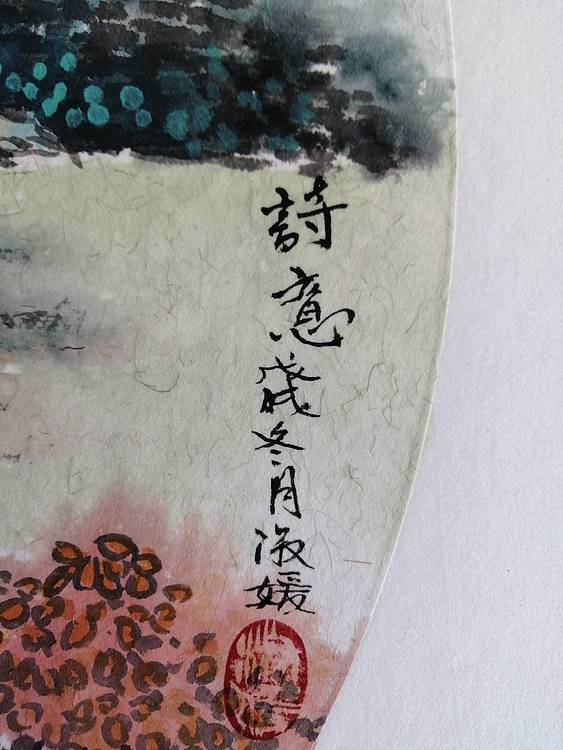 詩意戊戌冬月淑媛